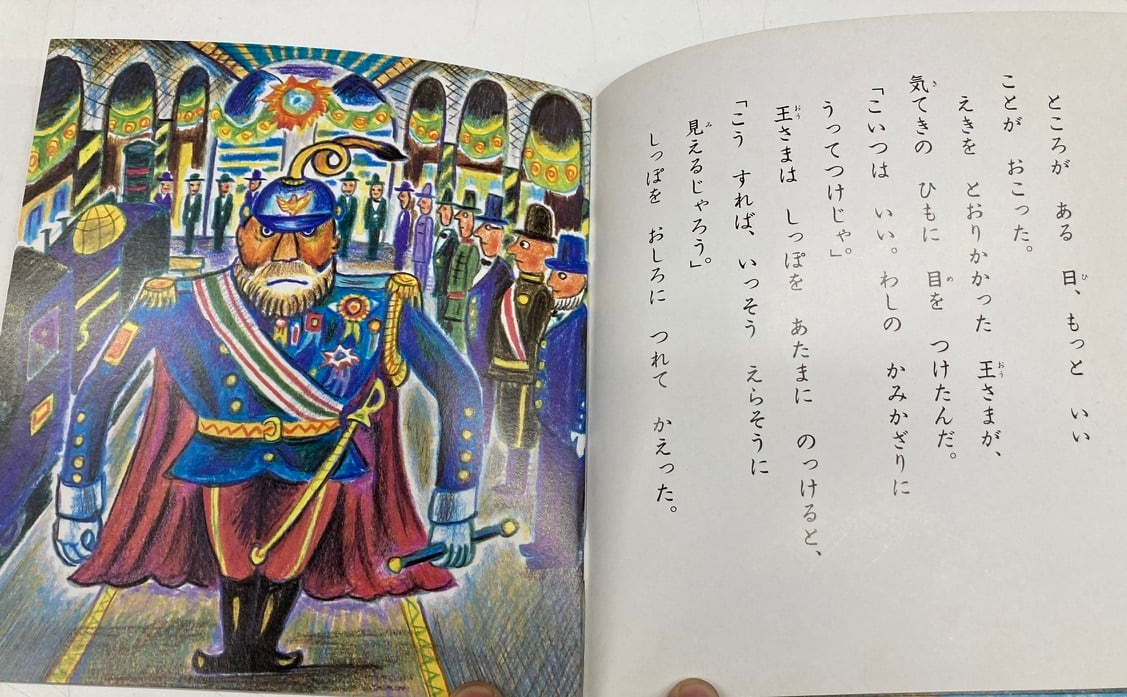 ところが　ある　日、もっと　いい
ことが　おこった。
えきを　とおりかかった　王さまが、
気てきの　ひもに　目を　つけたんだ。
「こいつは　いい。わしの　かみかざりに
うってつけじゃ。」
王さまは　しっぽを　あたまに　のっけると、
「こう　すれば、いっそう　えらそうに
見えるじゃろう。」
しっぽを　おしろに　つれて　かえった。